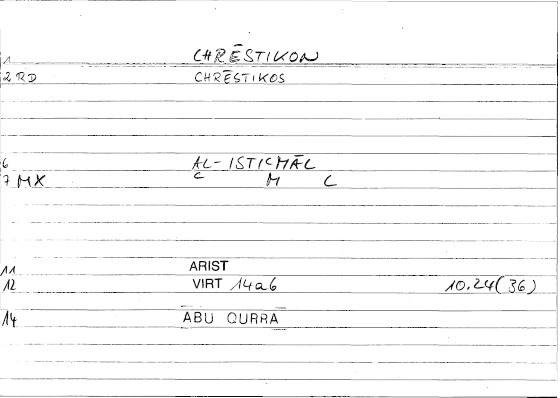 1 CHRĒSTIKON
2 RD CHRĒSTIKOS
6 AL-ISTIcMĀL
7 MX c M L
11 ARIST
12 VIRT 14a6 10.24(36)
14 ABŪ QURRĀ